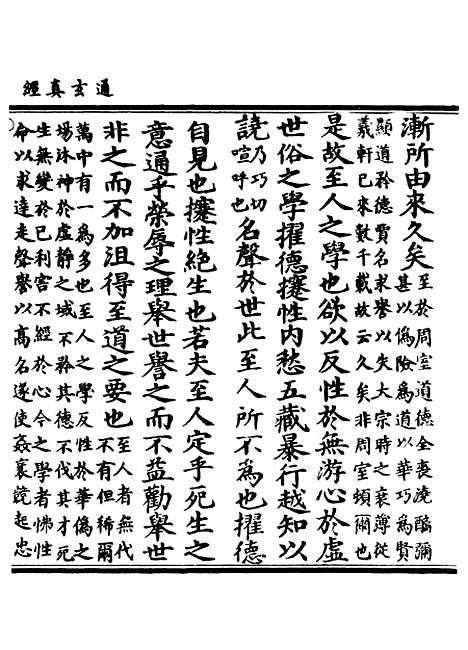 通玄真經
漸所由來久矣至於周室道德全喪澆醨彌甚以偽險為道以華巧為賢
顯道矜德賢名求譽以失大宗時之衰薄從羲軒已來數千載故云久矣非周室頓爾也
是故至人之學也欲以反性於無游心於虛
世俗之學擢德攓性內愁五藏暴行越知以
譊乃巧切喧呼也名聲於世此至人所不為也擢德
自見也攓性絕生也若夫至人定乎死生之
意通乎榮辱之理舉世譽之而不益勸舉世
非之而不加沮得至道之要也至人者無代不有但稀爾
萬中有一為多也至人之學反性於華偽之場沐神於虛靜之域不矜其德不伐其才死
生無變於已利害不經於心今之學者怫性命以求達走聲譽以高名遂使姦衺競起忠